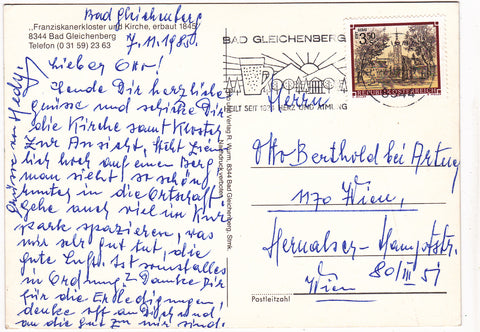 „Franziskanerkloster und Kirche, erbaut 1845"
8344 Bad Gleichenberg
Telefon (0 31 59) 23 63
Bad Gleichenberg
7.11.1985.
Lieber Otto!
Sende Dir herzliche
Grüsse und schicke Dir
die Kirche samt Kloster
zur Ansicht, steht ziem
lich hoch auf einem Berg
man sieht so schön
runter in die Ortschaft
gehe auch viel im Kur
park spazieren, was
mir sehr gut tut, die
gute Luft. Ist sonst alles
in Ordnung? Danke Dir
für die Erledigungen,
denke oft an Dich und
an die gut zu mir sind.
Grüsse von Hedy.
Verlag R. Wurm, 8344 Bad Gleichenberg, Stmk.
Nachdruck verboten
BAD GLEICHENBERG
HEILT SEIT HERZ UND ATMUNG
8344
3.50
REPUBLIK ÖSTERREICH
Herrn
Otto Berthold bei
1170 Wien,
Hernalser-Hauptstr.
80/III 51
Wien
Postleitzahl